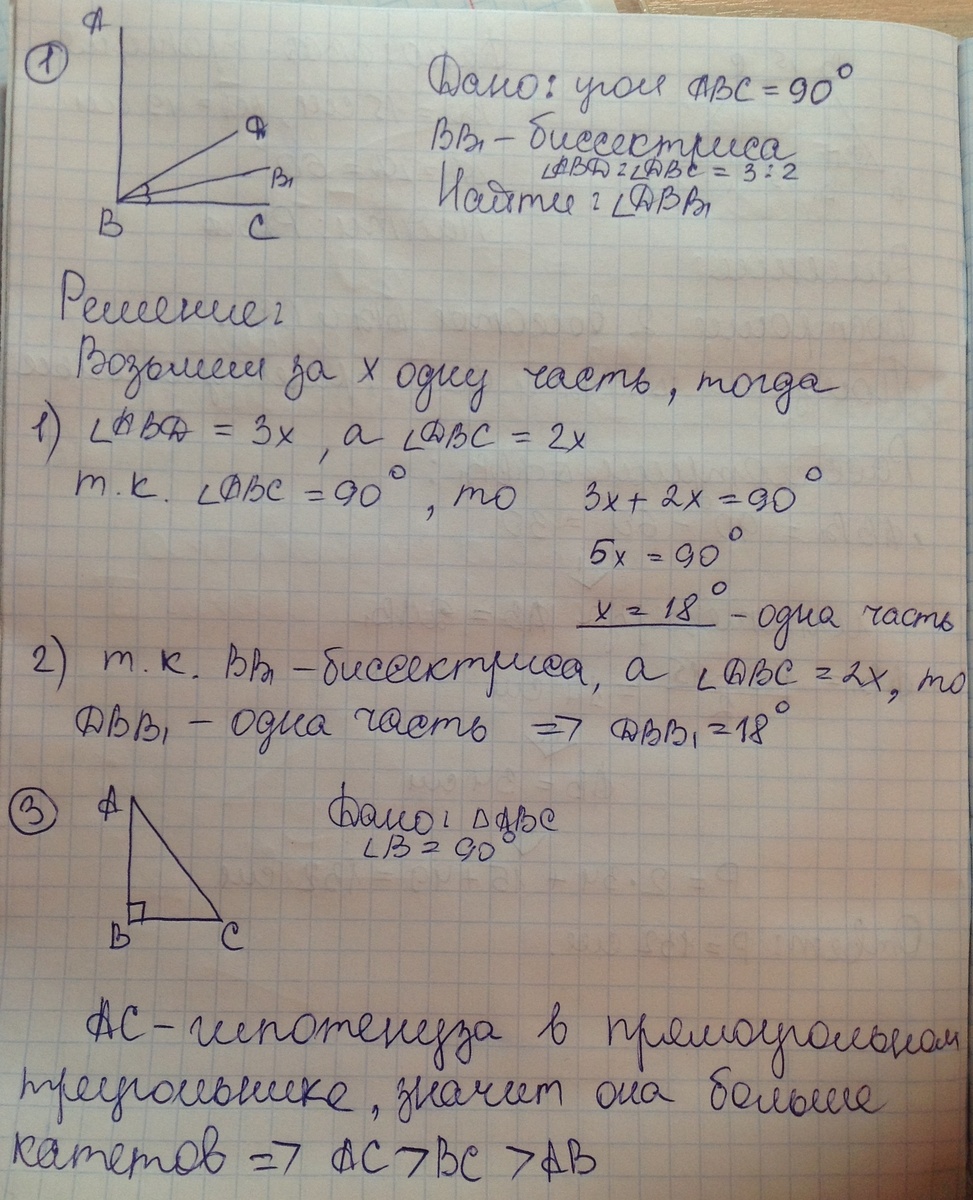 1
A
Д
B₁
B
C
Дано: угол ABC = 90°
BB₁ - биссектриса
∠ABД : ∠ДBC = 3 : 2
Найти : ∠ДBB₁
Решение:
Возьмем за x одну часть, тогда
1) ∠ABД = 3x, а ∠ДBC = 2x
т.к. ∠ABC = 90°, то 3x + 2x = 90°
5x = 90°
x = 18° - одна часть
2) т.к. BB₁ - биссектриса, а ∠ДBC = 2x, то
ДBB₁ - одна часть => ДBB₁ = 18°
3
A
B
C
Дано: △ABC
∠B = 90°
AC - гипотенуза в прямоугольном
треугольнике, значит она больше
катетов => AC > BC > AB